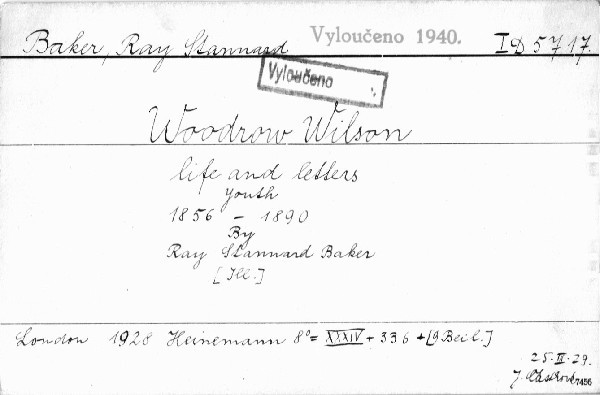 Baker, Ray Stannard Vyloučeno 1940. I D 5717.
Vyloučeno
Woodrow Wilson
life and letters
Youth
1856 - 1890
By
Ray Stannard Baker
[Ill.]
London 1928 Heinemann 8°= XXXIV + 336 + [9 Beil.]
25.II.29.
J. 7456